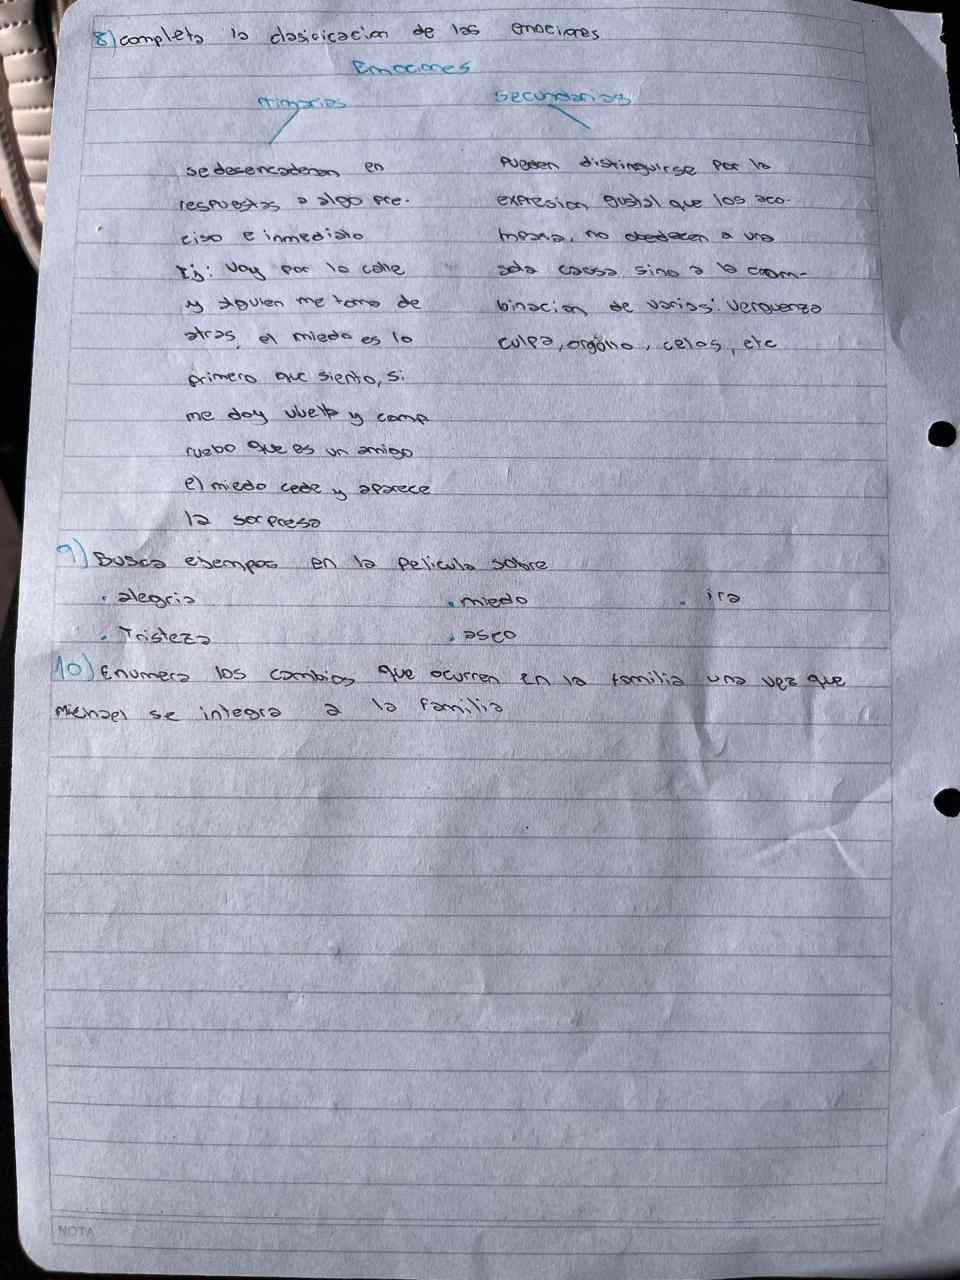 8) completa la clasificacion de las emociones
Emociones
Primarias
secundarias
se desencadenan en
respuestas a algo pre-
ciso e inmediato
Ej: voy por la calle
y alguien me toma de
atras, el miedo es lo
primero que siento, si
me doy vuelta y comp
ruebo que es un amigo
el miedo cede y aparece
la sorpresa
Pueden distinguirse por la
expresion gustal que los aco-
mpaña, no obedecen a una
sola causa sino a la com-
binacion de varias: verguenza
culpa, orgullo, celos, etc
9) Busca ejempos en la pelicula sobre
· alegria · miedo · ira
· Tristeza · asco
10) Enumera los cambios que ocurren en la familia una vez que
Michael se integra a la familia
NOTA